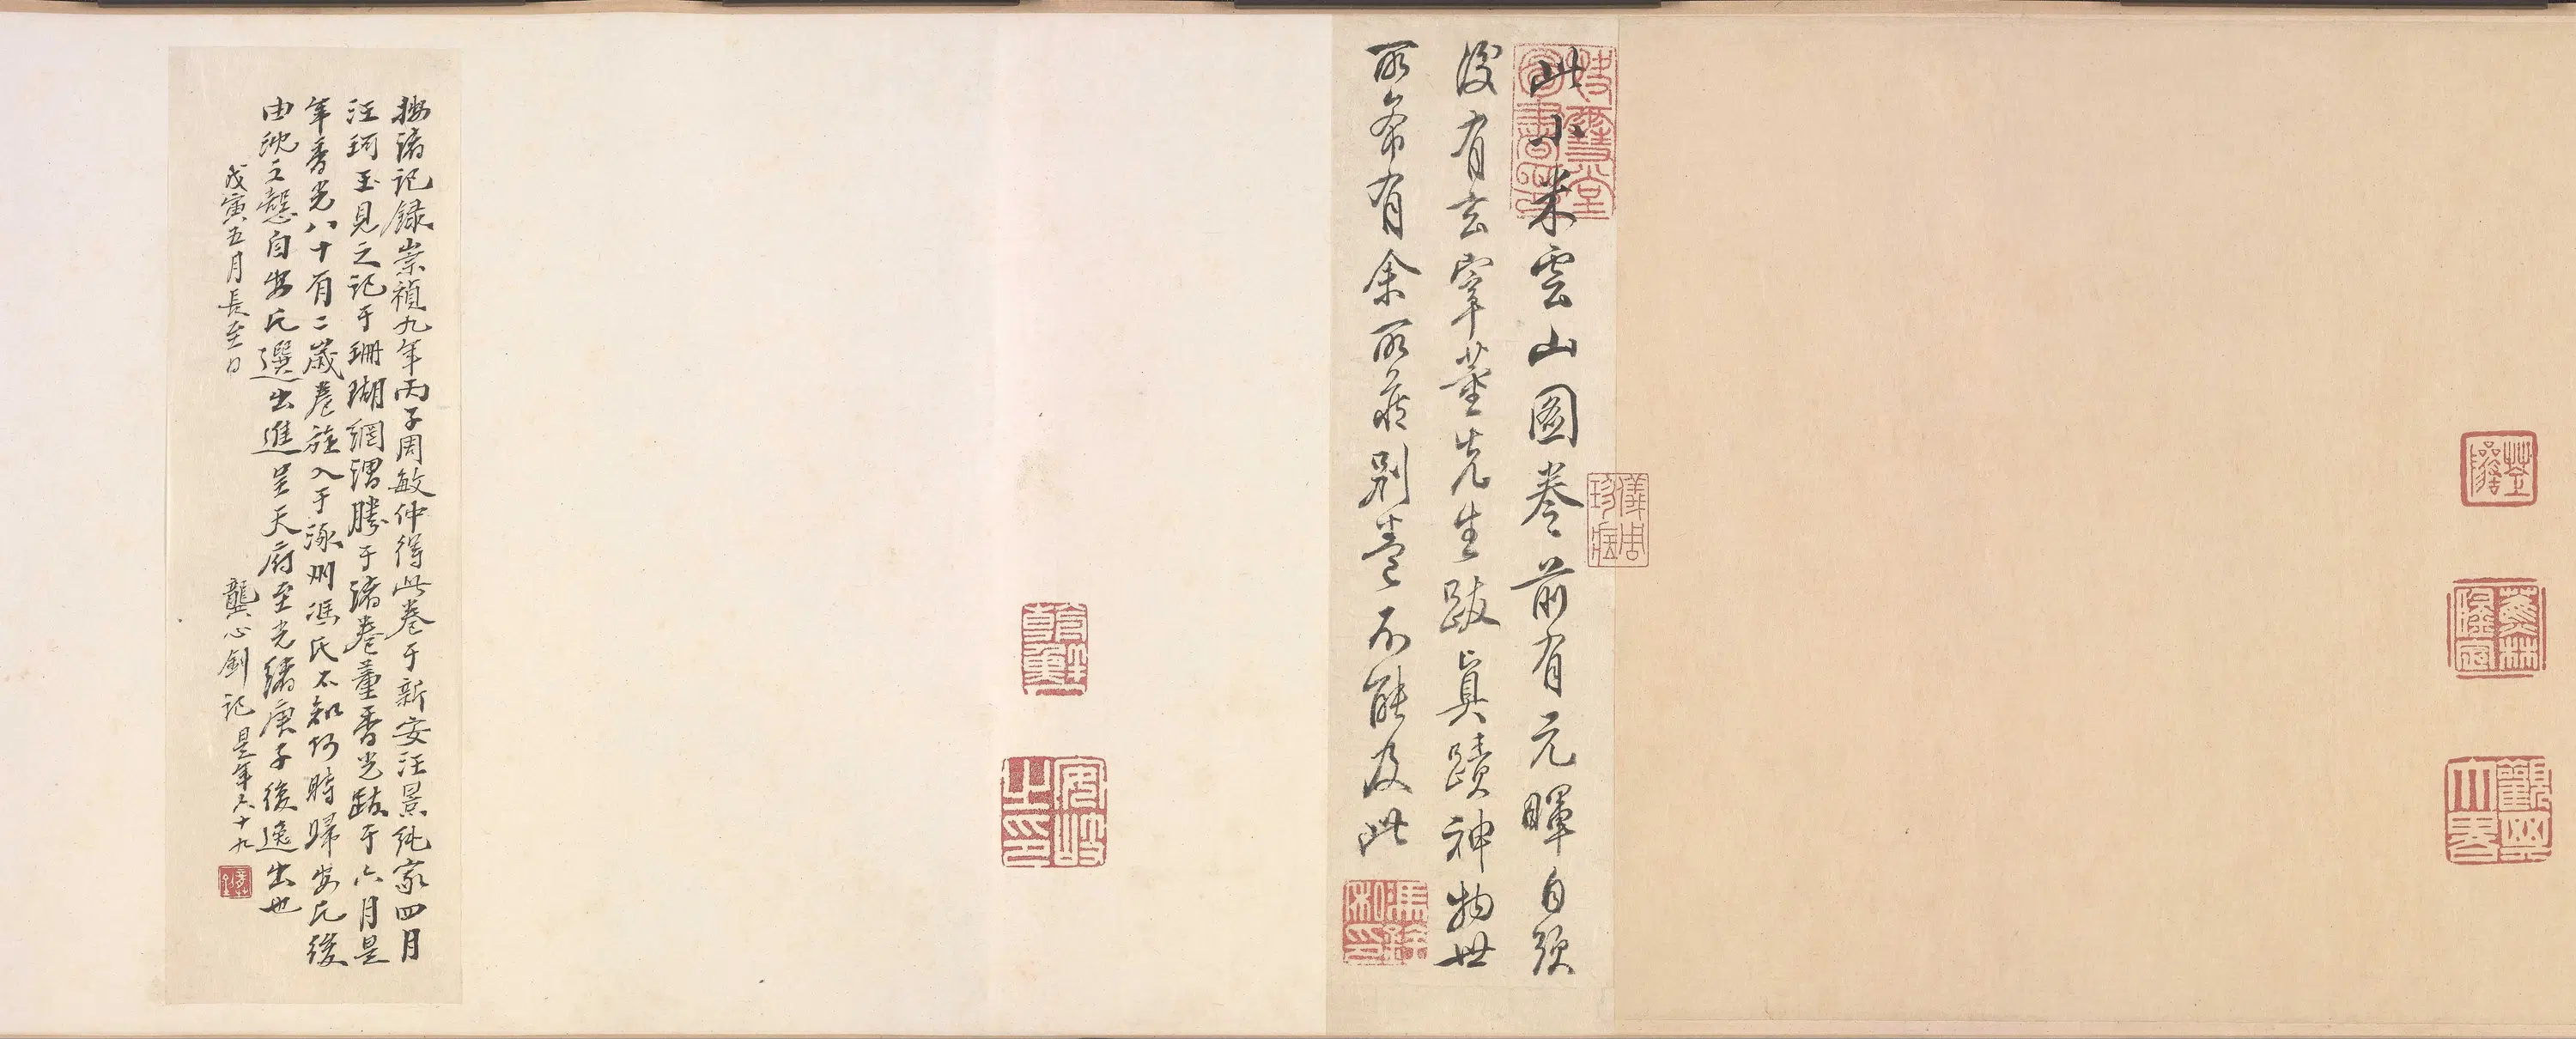 此小米雲山圖卷前有元暉自題
後有玄宰董先生跋眞蹟神物世
所希有余所藏別卷不能及此
按諸記録崇禎九年丙子周敏仲得此卷于新安汪景純家四月
汪珂玉見之記于珊瑚網謂勝于諸卷董香光跋于六月是
年香光八十有二歲卷旋入于涿州馮氏不知何時歸安氏後
由沈王懇自安氏選出進呈天府至光緒庚子後逸出也
戊寅五月長至日
龔心釗記是年六十九
儀周珍藏
安岐之印
馮銓私印
蕉林